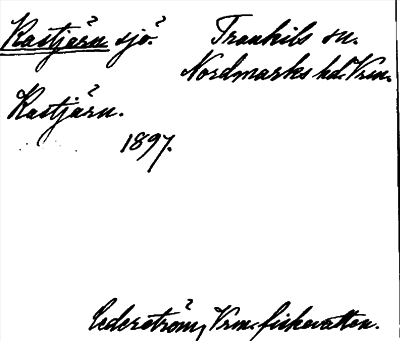 Kastjärn sjö.
Trankils sn.
Nordmarks hd. Vrm.
Kastjärn.
1897.
Cederström, Vrm. fiskevatten.